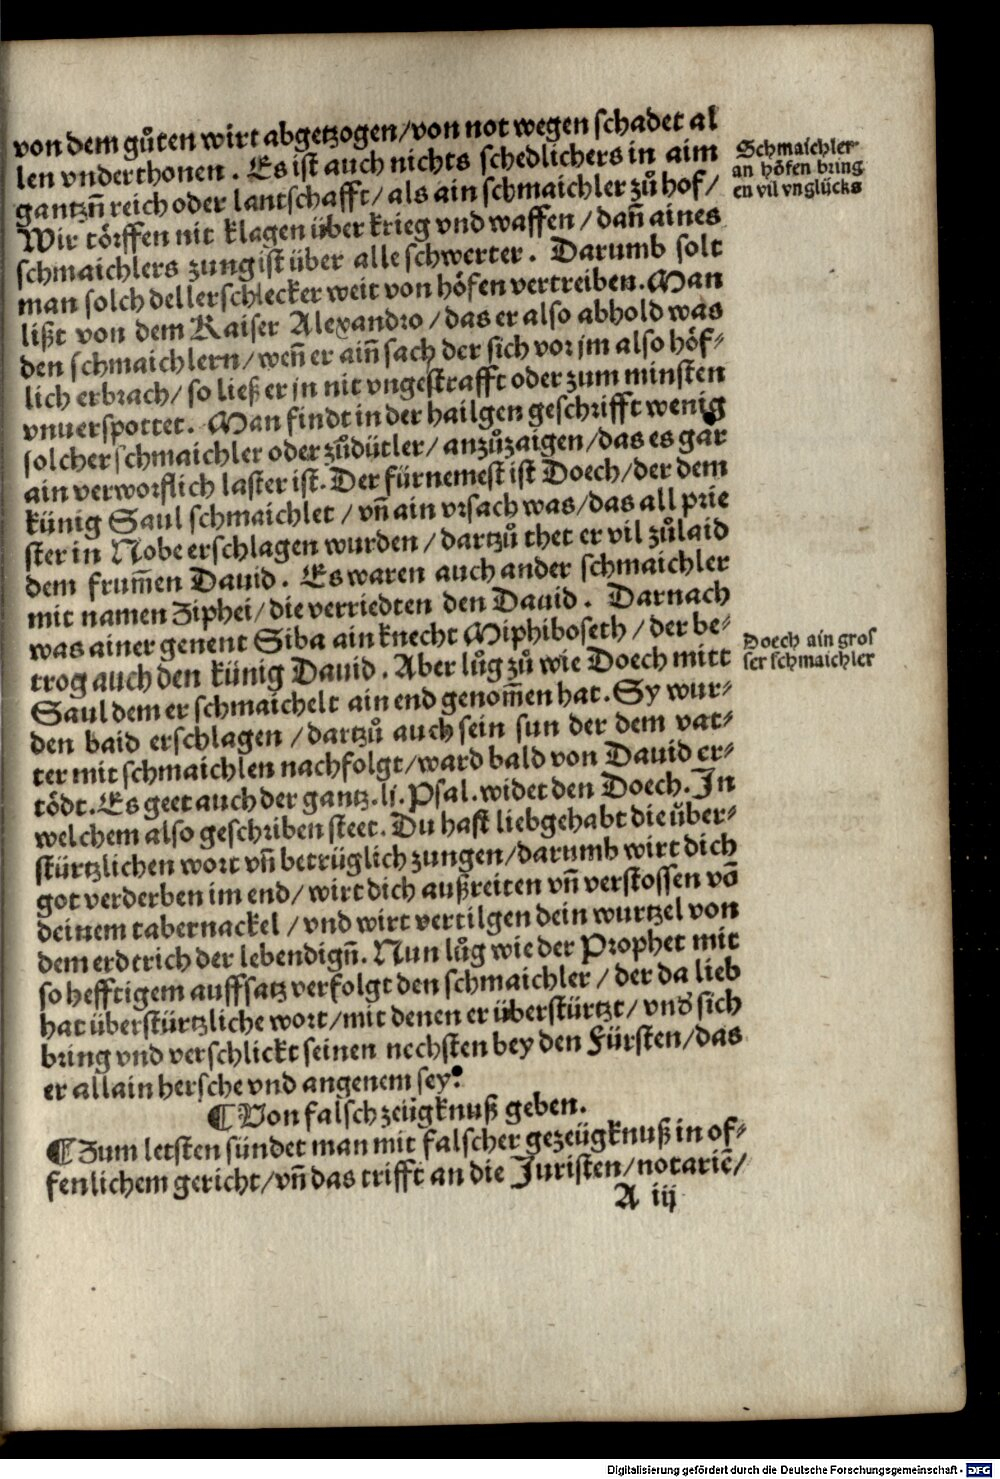 von dem gůten wirt abgetzogen/von not wegen schadet al
len vnderthonen. Es ist auch nichts schedlichers in aim
gantzn̄ reich oder lantschafft/als ain schmaichler zů hof/
Wir törffen nit klagen über krieg vnd waffen/dan̄ aines
schmaichlers zung ist über alle schwerter. Darumb solt
man solch dellerschlecker weit von höfen vertreiben. Man
lißt von dem Kaiser Alexandro/das er also abhold was
den schmaichlern/wen̄ er ain̄ sach der sich vor jm also höf⸗
lich erbrach/so ließ er jn nit vngestrafft oder zum minsten
vnuerspottet. Man findt in der hailgen geschrifft wenig
solcher schmaichler oder zůdütler/anzůzaigen/das es gar
ain verworflich laster ist. Der fürnemest ist Doech/der dem
künig Saul schmaichlet/vn̄ ain vrsach was/das all prie
ster in Nobe erschlagen wurden/dartzů thet er vil zůlaid
dem frum̄en Dauid. Es waren auch ander schmaichler
mit namen Ziphei/die verriedten den Dauid. Darnach
was ainer genent Siba ain knecht Miphiboseth/der be⸗
trog auch den künig Dauid. Aber lůg zů wie Doech mitt
Saul dem er schmaichelt ain end genom̄en hat. Sy wur⸗
den baid erschlagen/dartzů auch sein sun der dem vat⸗
ter mit schmaichlen nachfolgt/ward bald von Dauid er⸗
tödt. Es geet auch der gantz .lj. Psal. widet den Doech. In
welchem also geschriben steet. Du hast liebgehabt die über⸗
stürtzlichen wort vn̄ betrüglich zungen/darumb wirt dich
got verderben im end/wirt dich außreiten vn̄ verstossen vō
deinem tabernackel/vnd wirt vertilgen dein wurtzel von
dem erdtrich der lebendign̄. Nun lůg wie der Prophet mit
so hefftigem auffsatz verfolgt den schmaichler/der da lieb
hat überstürtzliche wort/mit denen er überstürtzt/vnd sich
bring vnd verschlickt seinen nechsten bey den Fürsten/das
er allain hersche vnd angenem sey.
¶ Von falsch zeügknuß geben.
¶ Zum letsten sündet man mit falscher gezeügknuß in of⸗
fenlichem gericht/vn̄ das trifft an die Juristen/notariē/
A iij
Schmaichler
an höfen bring
en vil vnglücks
Doech ain gros
ser schmaichler
Digitalisierung gefördert durch die Deutsche Forschungsgemeinschaft - DFG